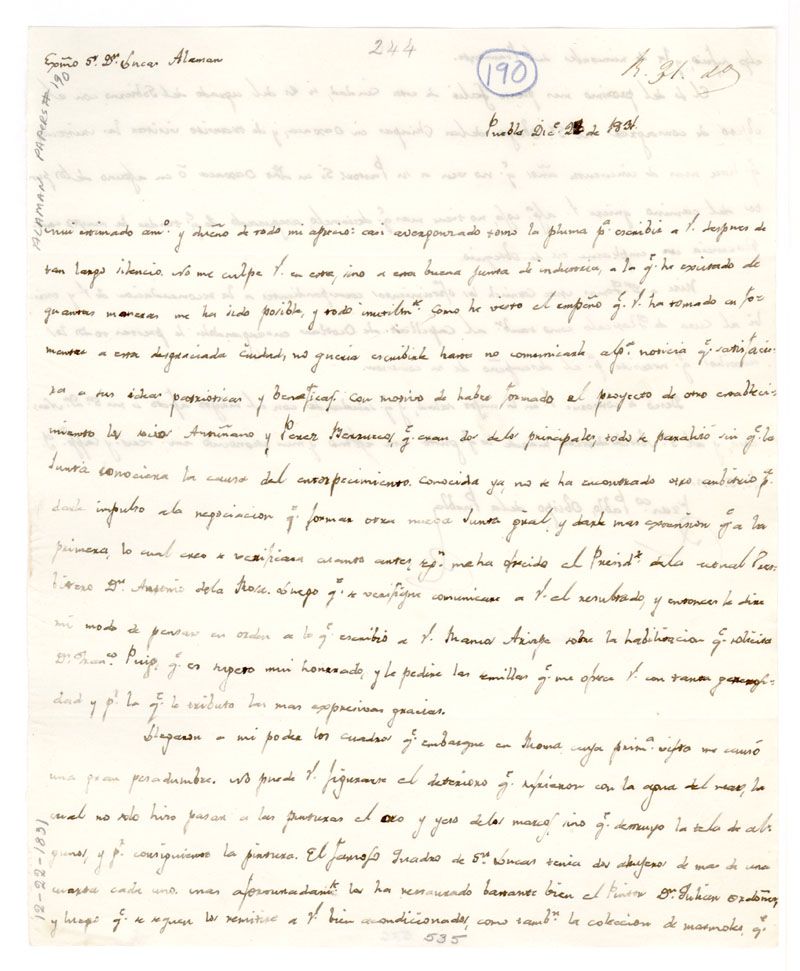 244
Exmo Sr. Dn. Lucas Alaman
190
R. 31. do
ALAMAN PAPERS #190
Puebla Dice. 22 de 1831
mui estimado amo. y dueño de todo mi aprecio: casi avergonzado tomo la pluma pa. escribir a V. despues de
tan largo silencio. No me culpe V. en esta, sino a esta buena junta de industria, a la qe. he excitado de
quantas maneras me ha sido posible, y todo inutilmte. Como he visto el empeño qe. V. ha tomado en fo-
mentar a esta desgraciada Ciudad, no queria escribirle hasta no comunicarle alga. noticia qe. satisfacie-
ra a sus ideas patrioticas y beneficas. Con motivo de haber formado el proyecto de otro estableci-
miento los socios Antuñano y Perez Berrueco, qe. eran dos de los principales, todo se paralisó sin qe. la
Junta conociera la causa del entorpecimiento. Conocida ya, no se ha encontrado otro ambitrio pa.
darle impulso a la negociacion qe. formar otra nueva Junta gral. y darle mas expansion qe. a la
primera, lo cual creo se verificara cuanto antes, segn. me ha ofrecido el Presidte. de la actual Pres-
bitero Dn. Antonio dela Rosa. Luego qe. se verifique comunicare a V. el resultado, y entonces le dire
mi modo de pensar en orden a lo qe. escribió a V. Ramos Arizpe sobre la habilitacion qe. solicita
Dn. Franco. Puig, qe. es sugeto mui honrrado, y le pedire las semillas qe. me ofrece V. con tanta generosi-
dad y pr. la qe. le tributo las mas expresivas gracias.
Llegaron a mi poder los cuadros qe. embarque en Roma cuya prima. vista me causó
una gran pesadumbre. No puede V. figurarse el deterioro qe. sufrieron con la agua del mar, la
cual no solo hiso pasar a las pinturas el oro y yeso delos marcos, sino qe. destruyo la tela de al-
gunos, y pr. consiguiente la pintura. El famoso Quadro de Sn. Lucas tenia dos abujeros de mas de una
cuarta cada uno. mas afortunadamte. los ha restaurado bastante bien el Pintor Dn. Julian Ordoñes,
y luego qe. se sequen los remitire a V. bien acondicionados, como tambn. la coleccion de marmoles, qe.
12-22-1831
535